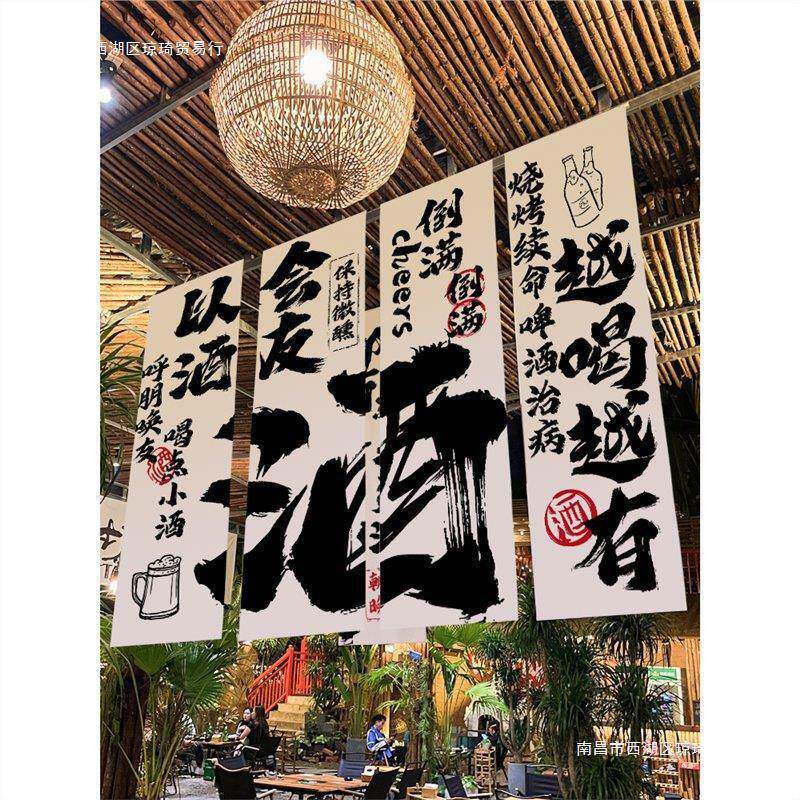 西湖区琼琦贸易行
以酒
呼朋唤友
喝点小酒
会友
保持微醺
酒
倒满
cheers
倒满
烧烤续命 啤酒治病
越喝越有
酒
南昌市西湖区琼琦